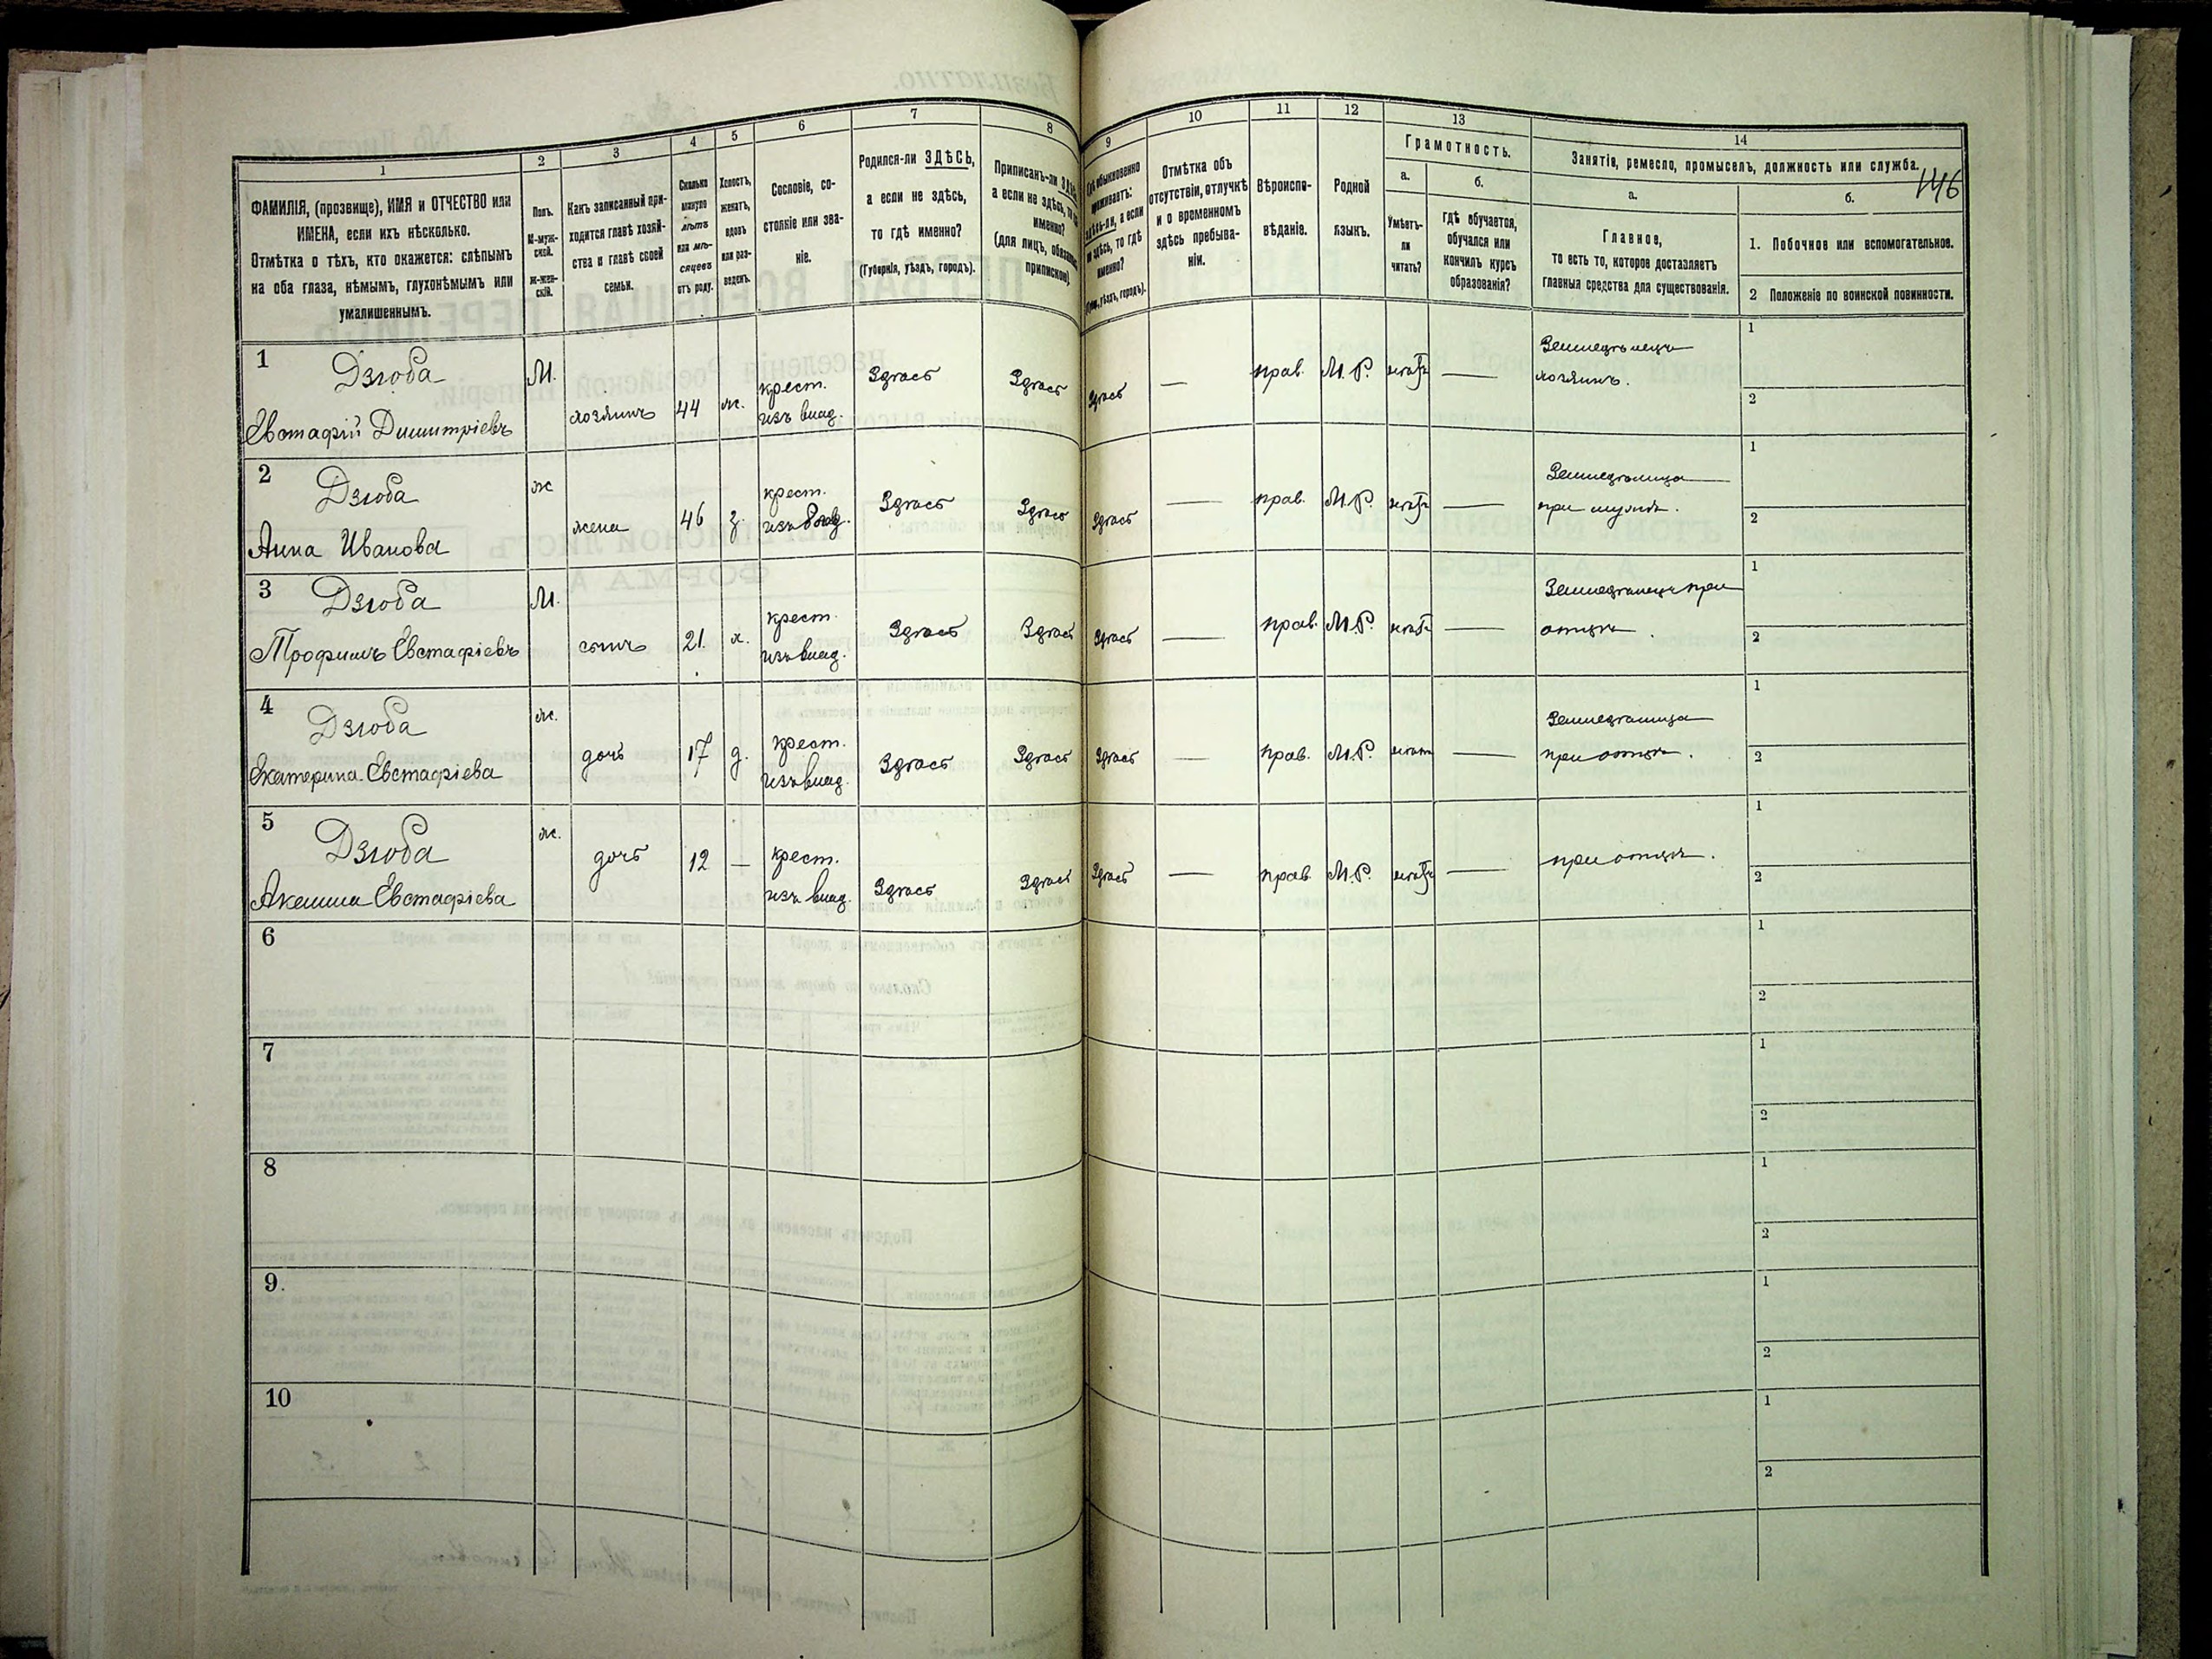 1
2
3
4
5
6
7
8
ФАМИЛІЯ, (прозвище), ИМЯ и ОТЧЕСТВО или
ИМЕНА, если ихъ нѣсколько.
Отмѣтка о тѣхъ, кто окажется: слѣпымъ
на оба глаза, нѣмымъ, глухонѣмымъ или
умалишеннымъ.
Полъ.
М-муж-
ской.
Ж-жен-
скій.
Какъ записанный при-
ходится главѣ хозяй-
ства и главѣ своей
семьи.
Сколько
минуло
лѣтъ
или мѣ-
сяцевъ
отъ роду.
Холостъ,
женатъ,
вдовъ
или раз-
веденъ.
Сословіе, со-
стояніе или зва-
ніе.
Родился-ли ЗДѢСЬ,
а если не здѣсь,
то гдѣ именно?
(Губернія, уѣздъ, городъ).
Приписанъ-ли
а если не здѣсь,
именно?
(для лицъ,
припискою).
9
10
11
12
13
14
146
обыкновенно
а если
то гдѣ
именно?
Отмѣтка объ
отсутствіи, отлучкѣ
и о временномъ
здѣсь пребыва-
ніи.
Вѣроиспо-
вѣданіе.
Родной
языкъ.
Грамотность.
а.
Умѣетъ-
ли
читать?
б.
гдѣ обучается,
обучался или
кончилъ курсъ
образованія?
Занятіе, ремесло, промыселъ, должность или служба.
а.
Главное,
то есть то, которое доставляетъ
главныя средства для существованія.
б.
1. Побочное или вспомогательное.
2 Положеніе по воинской повинности.
1
Дзюба
Евстафій Димитріевъ
М.
хозяинъ
44
ж.
крест.
изъ влад.
Здѣсь
Здѣсь
Здѣсь
—
прав.
М.Р.
—
Земледѣлецъ
хозяинъ.
1
2
2
Дзюба
Анна Иванова
ж
жена
46
з.
крест.
изъ влад.
Здѣсь
Здѣсь
Здѣсь
—
прав.
М.Р.
—
Земледѣлица
при мужѣ.
1
2
3
Дзюба
Трофимъ Евстафіевъ
М.
сынъ
21.
х.
крест.
изъ влад.
Здѣсь
Здѣсь
Здѣсь
—
прав.
М.Р.
—
Земледѣлецъ при
отцѣ.
1
2
4
Дзюба
Екатерина Евстафіева
ж.
дочь
17
д.
крест.
изъ влад.
Здѣсь
Здѣсь
Здѣсь
—
прав.
М.Р.
—
Земледѣлица
при отцѣ.
1
2
5
Дзюба
Акилина Евстафіева
ж.
дочь
12
—
крест.
изъ влад.
Здѣсь
Здѣсь
Здѣсь
—
прав
М.Р.
—
при отцѣ.
1
2
6
1
2
7
1
2
8
1
2
9.
1
2
10
1
2